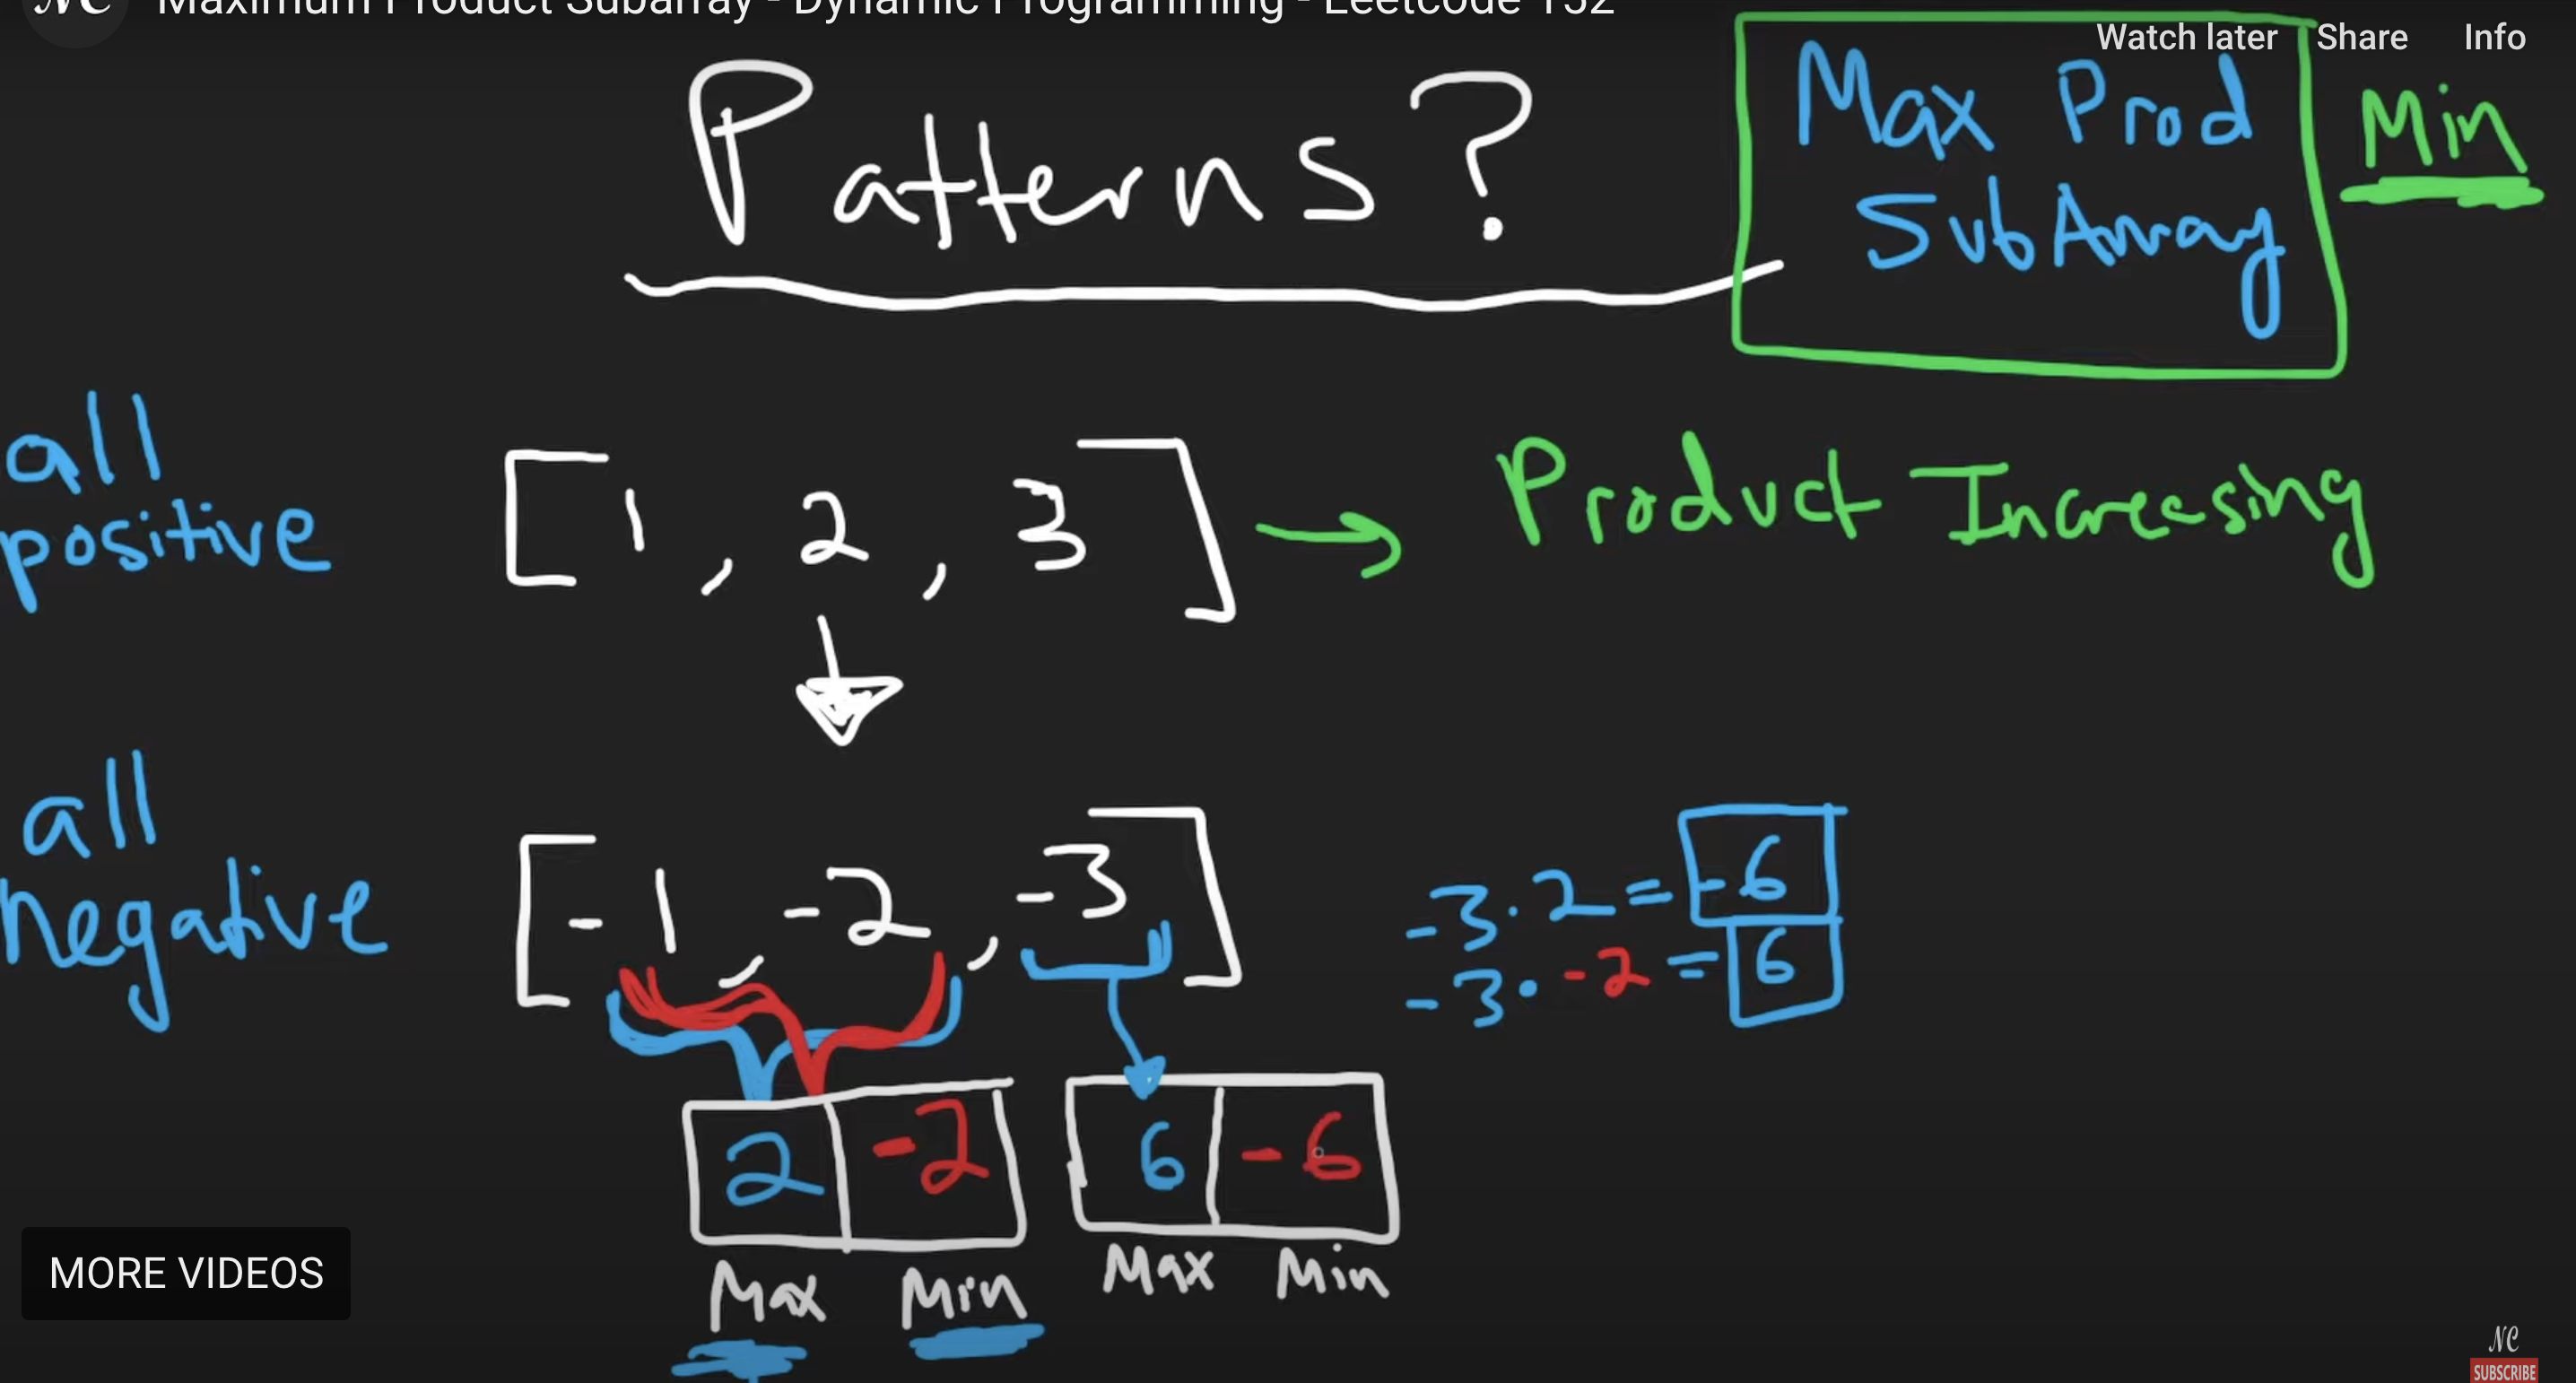 NC Maximum Product Subarray - Dynamic Programming - Leetcode 152
Watch later Share Info
Patterns?
Max Prod
SubArray
Min
all
positive
[1, 2, 3] → Product Increasing
all
negative
[-1, -2, -3]
-3·2=-6
-3·-2=6
2 -2
6 -6
Max Min
Max Min
MORE VIDEOS
NC
SUBSCRIBE